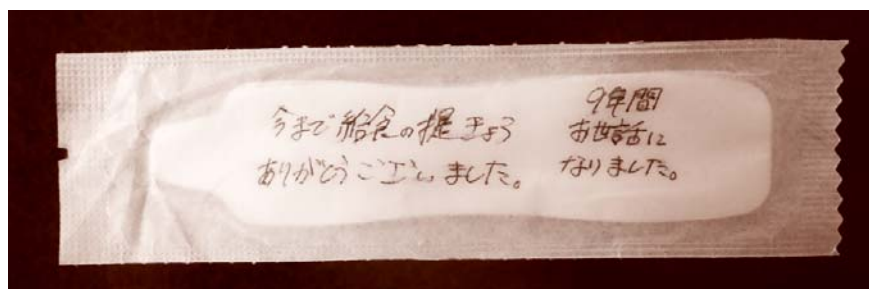 今まで給食の提きょう
ありがとうございました。
9年間
お世話に
なりました。